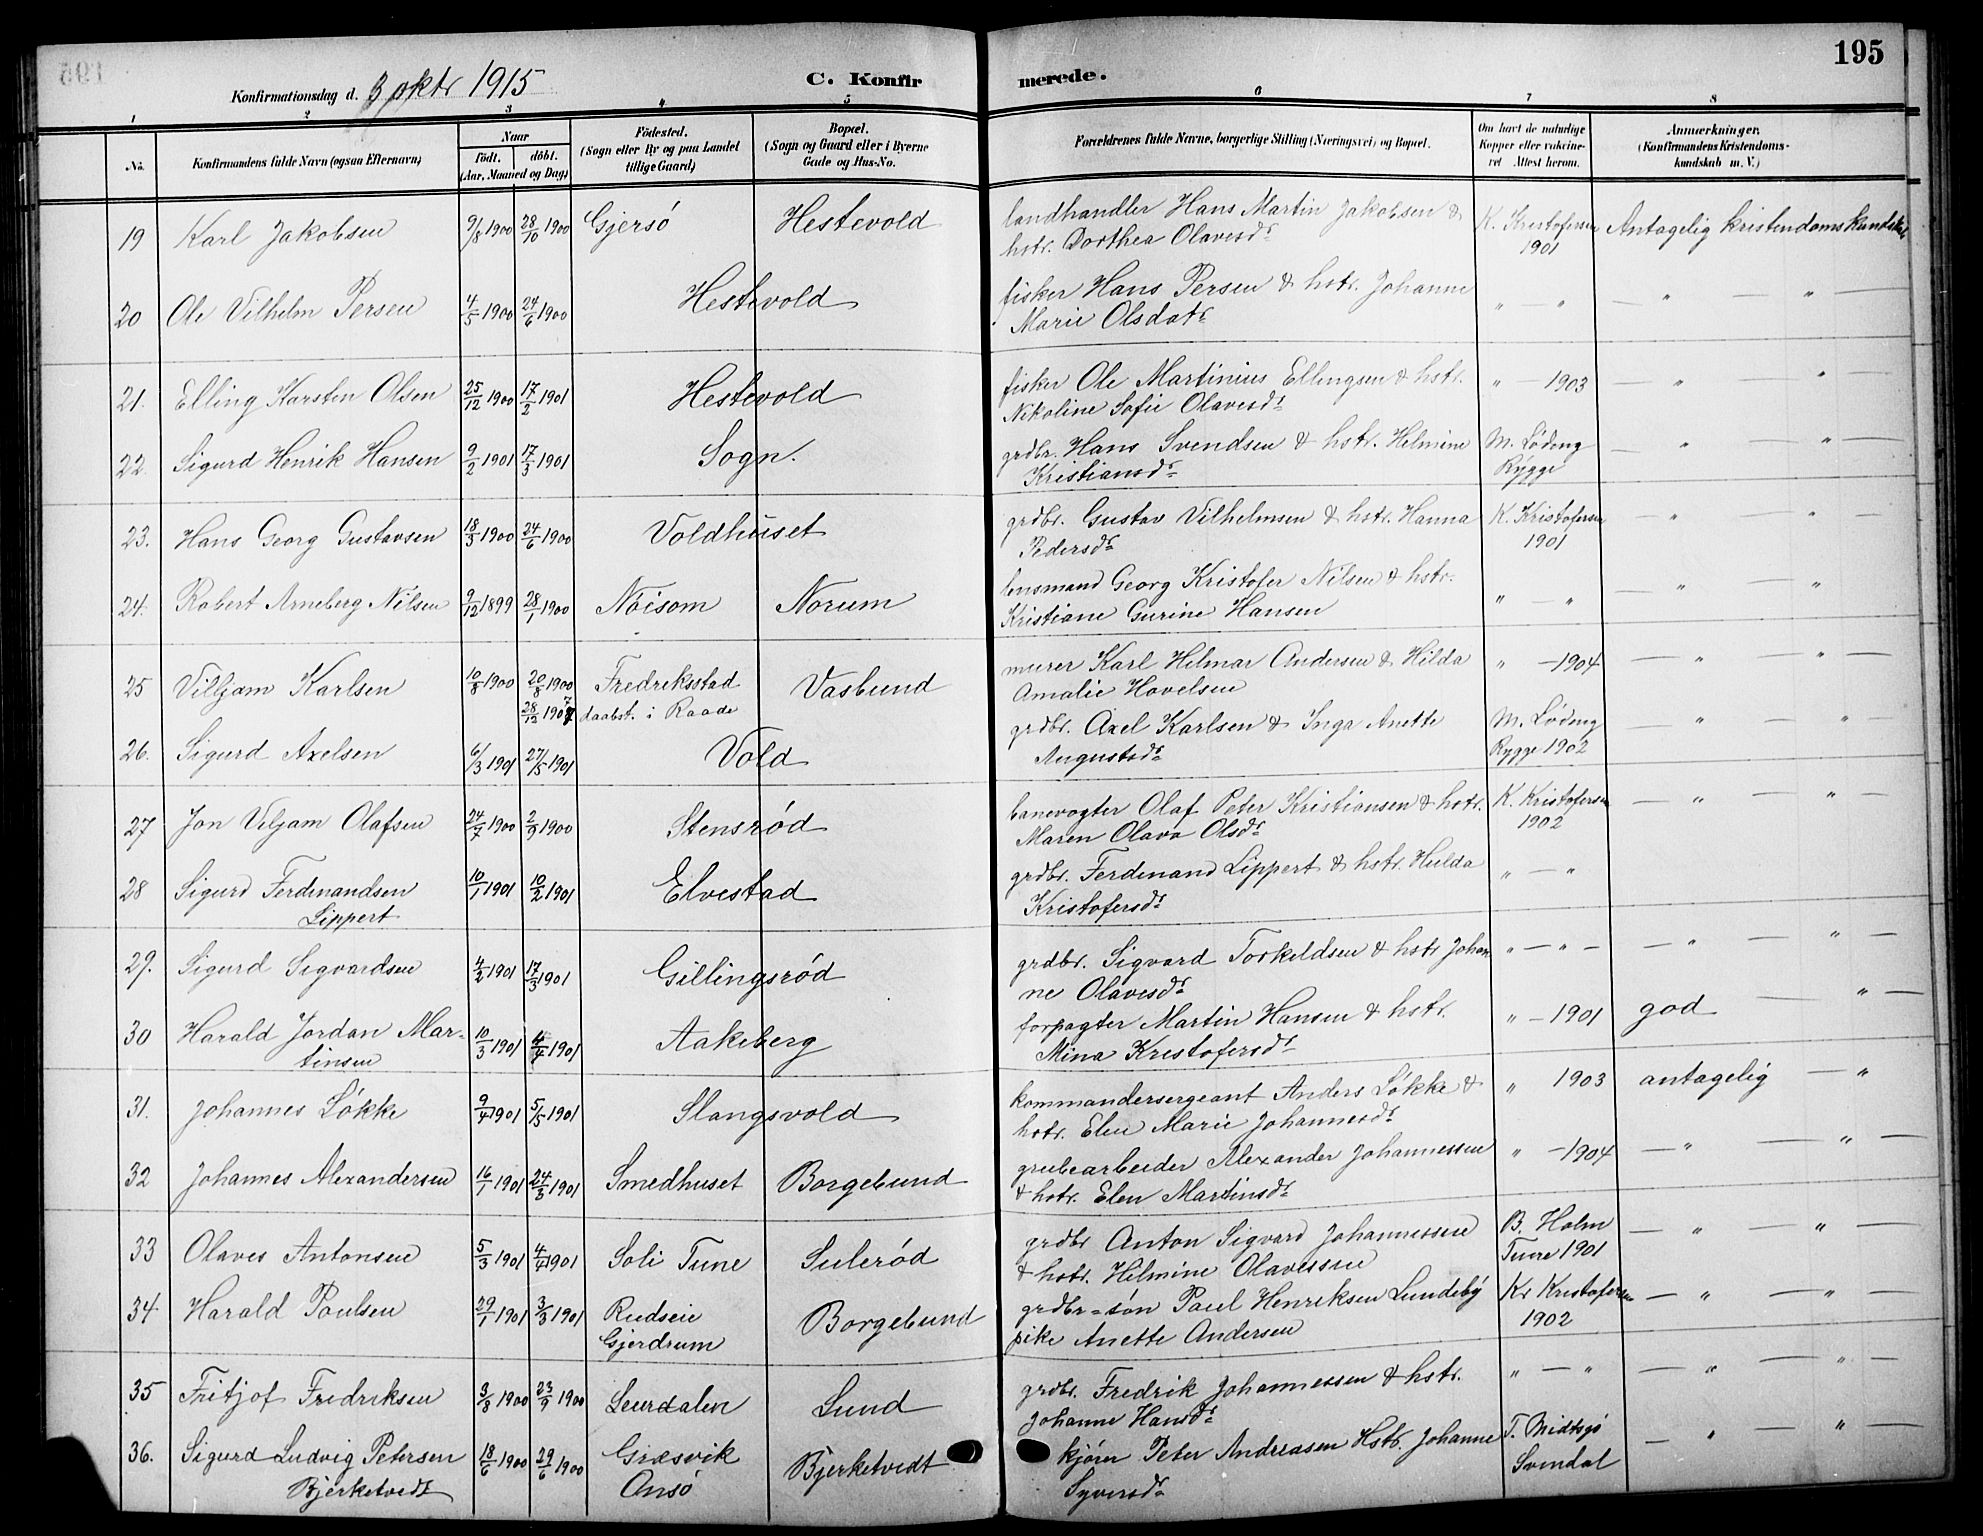 195
Konfirmationsdag d. 3 oktr 1915
C. Konfirmerede.
1 2 3 4 5 6 7 8
No.
Konfirmandens fulde Navn (ogsaa Efternavn)
Naar
födt. döbt.
(Aar, Maaned og Dag)
Födested.
(Sogn eller By og paa Landet
tillige Gaard)
Bopæl.
(Sogn og Gaard eller i Byerne
Gade og Hus-No.
Forældrenes fulde Navne, borgerlige Stilling (Næringsvei) og Bopæl.
Om havt de naturlige
Kopper eller vakcine-
ret Attest herom.
Anmærkninger.
(Konfirmandens Kristendoms-
kundskab m. V.)
19 Karl Jakobsen 9/8 1900 28/10 1900 Gjersö Hestevold landhandler Hans Martin Jakobsen & K. Kristofersen Antagelig kristendomskundskab
hstr. Dorthea Olavesdr 1901
20 Ole Vilhelm Persen 4/5 1900 24/6 1900 Hestevold fisker Hans Persen & hstr. Johanne " — " — " — " —
Marie Olsdatr
21. Elling Karsten Olsen 25/12 1900 17/2 1901 Hestevold fisker Ole Martinius Ellingsen & hstr. " — 1903 — " — " —
Nikoline Sofie Olavesdr
22. Sigurd Henrik Hansen 9/2 1901 17/3 1901 Sogn. grdbr. Hans Svendsen & hstr. Helmine M. Lödeng — " — " —
Kristiansdr Rygge
23. Hans Georg Gustavsen 18/3 1900 24/6 1900 Voldhuset grdbr. Gustav Vilhelmsen & hstr. Hanna K. Kristofersen — " — " —
Pedersdr 1901
24. Robert Arneberg Nilsen 9/12 1899 28/1 1900 Nöisom Norum lensmand Georg Kristofer Nilsen & hstr. " — " — " — "
Kristiane Gurine Hansen
25 Viljam Karlsen 10/8 1900 20/8 1900 Fredriksstad Vasbund murer Karl Helmar Andersen & Hilda " — 1904 — " — " —
28/12 1907 daabst. i Raade Amalie Hovelsen
26. Sigurd Axelsen 6/3 1901 27/5 1901 Vold grdbr. Axel Karlsen & Inga Anette M. Lödeng — " — "
Augustsdr Rygge 1902
27 Jon Viljam Olafsen 24/7 1900 2/9 1900 Stensröd banevogter Olaf Peter Kristiansen & hstr. K. Kristofersen — " — " —
Maren Olava Olsdr 1902
28 Sigurd Ferdinandsen 10/1 1901 10/2 1901 Elvestad grdbr. Ferdinand Lippert & hstr. Hulda " — "
Lippert Kristofersdr
29. Sigurd Sigvardsen 4/2 1901 17/3 1901 Gillingsröd grdbr. Sigvard Torkeldsen & hstr Johan " — " — — " — " —
ne Olavesdr
30 Harald Jordan Mar- 10/3 1901 4/4 1901 Aakeberg forpagter Martin Hansen & hstr. " — 1901 god — " —
tinsen Mina Kristofersdr
31. Johannes Løkke 9/4 1901 5/5 1901 Slangsvold kommandersergeant Anders Løkke & " 1903 antagelig — "
hstr. Elen Marie Johannesdr
32 Johannes Alexandersen 16/1 1901 24/3 1901 Smedhuset Borgebund grubearbeider Alexander Johannessen " — 1904 — " — " —
& hstr. Elen Martinsdr
33 Olaves Antonsen 5/3 1901 4/4 1901 Soli Tune Suleröd grdbr Anton Sigvard Johannessen B. Holm — " — " —
& hstr. Helmine Olavessen Tune 1901
34 Harald Poulsen 29/1 1901 3/3 1901 Rudseie Borgebund grdbr-sön Paul Henriksen Lundeby Kr Kristofersen — " — " —
Gjerdrum pike Anette Andersen 1902
35 Fritjof Fredriksen 3/8 1900 23/9 1900 Leurdalen Lund grdbr. Fredrik Johannessen & hstr. " — " — " — " —
Johanne Hansdr
36. Sigurd Ludvig Petersen 18/6 1900 29/6 1900 Græsvik Bjerketvedt kjörer Peter Andreasen Hstr. Johanne T. Midtsjø — " — "
Bjerketvedt Onsö Syversdr Svendal